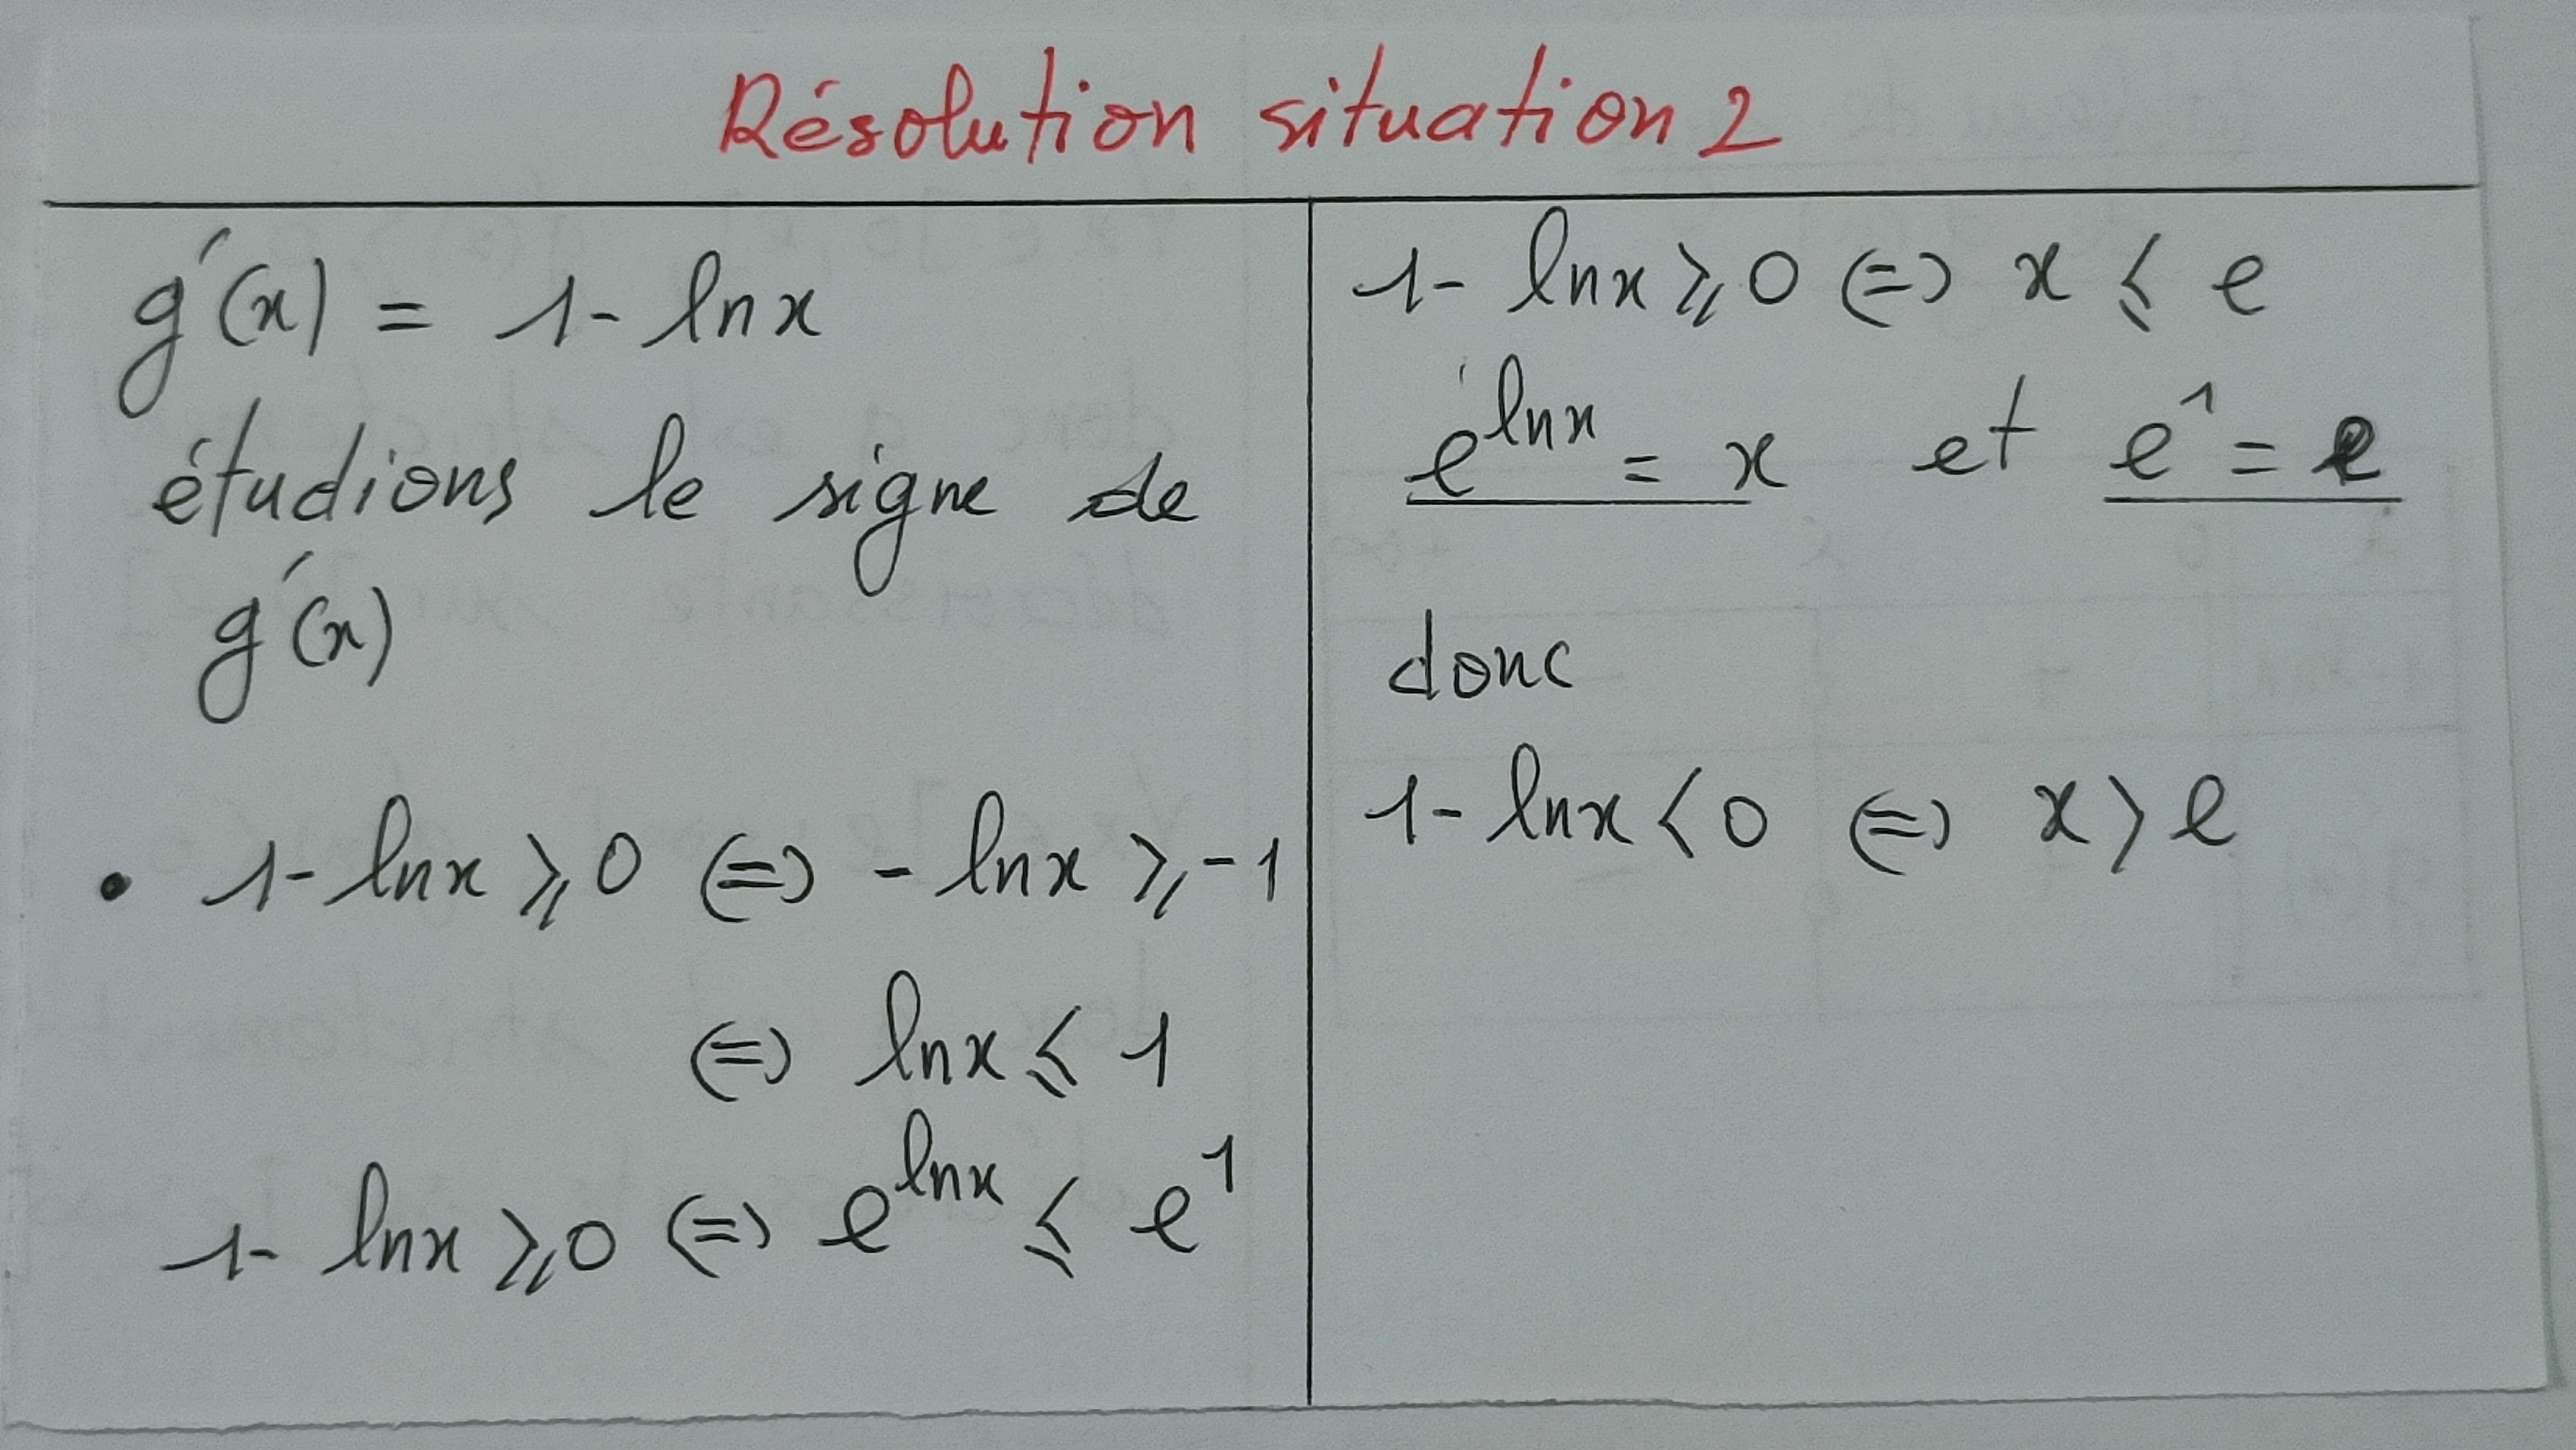 Résolution situation 2
g'(x) = 1 - ln x
étudions le signe de
g'(x)
• 1 - ln x ⩾ 0 (=) - ln x ⩾ -1
(=) ln x ⩽ 1
1 - ln x ⩾ 0 (=) e^{ln x} ⩽ e^1
1 - ln x ⩾ 0 (=) x ⩽ e
e^{ln x} = x et e^1 = e
donc
1 - ln x < 0 (=) x > e